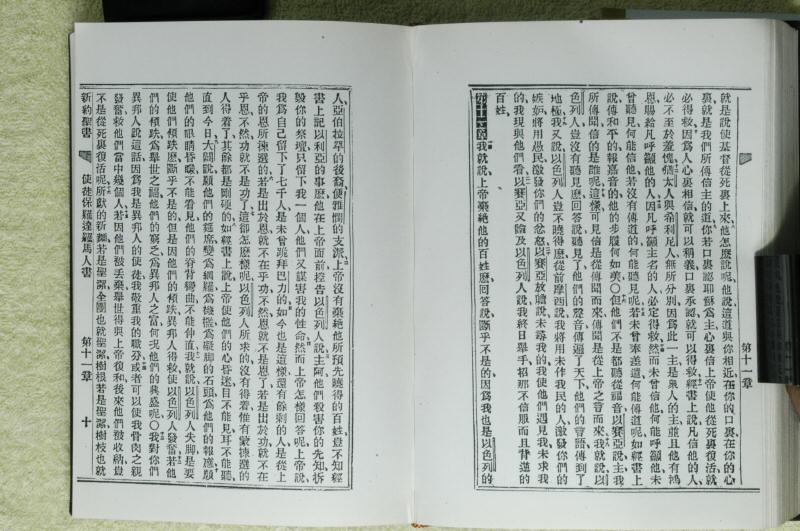 就是說使基督從死裏上來他怎麽說呢他說這道與你相近在你的口裏在你的心
裏就是我們所傳信主的道你若口裏認耶穌爲主心裏信上帝使他從死裏復活就
必得救因爲人心裏相信就可以稱義口裏承認就可以得救經書上說凡信他的人
必不至於羞愧猶太人與希利尼人無所分別因爲此一主是衆人的主並且他有鴻
恩賜給凡呼籲他的人因凡呼籲主名的人必定得救然而未曾信他何能呼籲他未
曾聽見何能信他若沒有傳道的何能聽見呢若未曾奉差遣何能傳道呢如經書上
說傳和平的報嘉音的他的步履何如美○但他們不是都聽從福音以賽亞說主我
所傳聞信的是誰呢這樣可見信是從傳聞而來傳聞是從上帝之言而來我就說以
色列人豈沒有聽見麽回答說聽見了他們的聲音傳遍了天下他們的言語傳到了
地極我又說以色列人豈不曉得麽從前摩西說我將用未作我民的人激發你們的
嫉妬將用愚民激發你們的忿怒以賽亞放膽說未尋我的我使他們遇見我未求我
的我現與他們看以賽亞又論及以色列人說我終日舉手招那不信服而且背逆的
百姓
第十一章 我就說上帝棄絕他的百姓麽回答說斷乎不是的因爲我也是以色列的
第十一章
人亞伯拉罕的後裔便雅憫的支派上帝沒有棄絕他所預先曉得的百姓豈不知經
書上記以利亞的事麽他在上帝面前控告以色列人說主阿他們殺害你的先知拆
毀你的祭壇只留下我一個人他們又謀害我的性命然而上帝怎樣回答呢上帝說
我爲自己留下了七千人是未曾跪拜巴力的如今也是這樣還有餘剩的人是從上
帝的恩所揀選的若是出於恩就不在乎功不然恩就不是恩了若是出於功就不在
乎恩不然功就不是功了這卻怎麽樣呢以色列人所求的沒有得着惟有蒙揀選的
人得着了其餘都是剛硬的如經書上說上帝使他們的心昏迷目不能見耳不能聽
直到今日大闢說願他們的筵席變爲網羅爲機檻爲礙脚的石頭爲他們的報應願
他們的眼睛昏矇不能看見他們的脊背彎曲不能伸直我就說以色列人失脚是要
使他們傾跌麽斷乎不是的但是因他們的傾跌異邦人得救使以色列人發奮若他
們的傾跌爲舉世之富他們的窮乏爲異邦人之富何况他們的興盛呢○我對你們
異邦人說這話因爲我是異邦人的使徒我敬重我的職分或者可以使我骨肉之親
發奮救他們當中幾個人若因他們被丟棄舉世得與上帝復和後來他們被收納豈
不是從死裏復活呢所獻的新麵若是聖潔全團也就聖潔樹根若是聖潔樹枝也就
新約聖書 使徒保羅達羅馬人書 第十一章 十